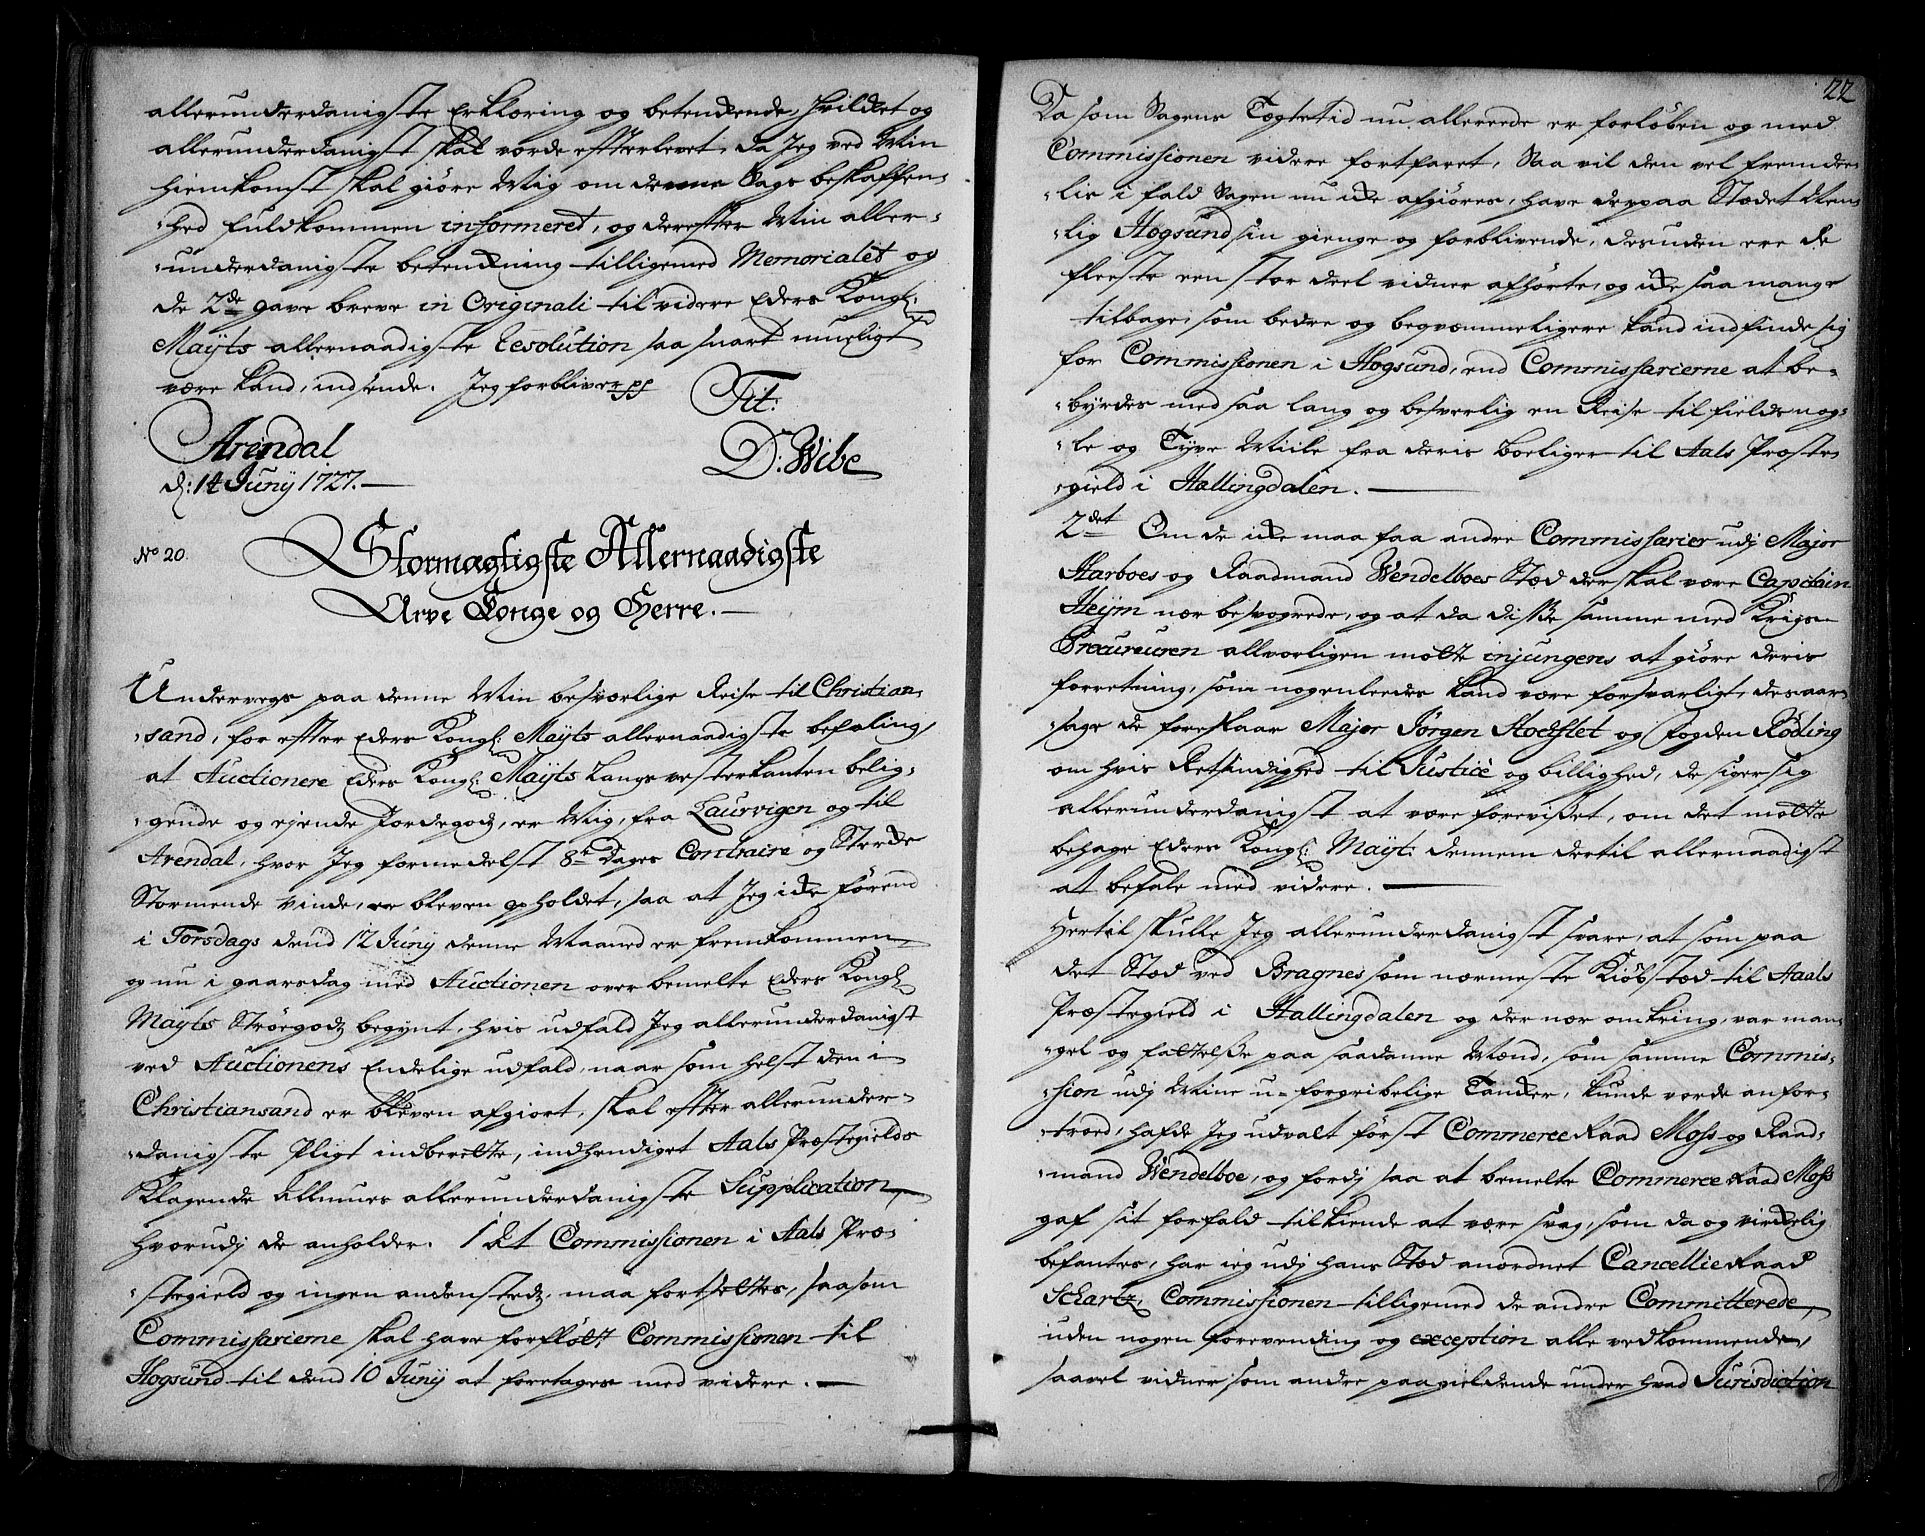 allerunderdanigste Erklæring og betenckende, hvilcket og
allerunderdanigst skal vorde effterlevet, da Jeg ved Min
hiemkomst skal giøre Mig om denne Sags beskaffen-
-hed fuldkommen informeret, og dereffter Min aller-
-underdanigste betenckning tilligemed Memorialet og
de 2de gave breve in Originali til videre Eders Kongl:
Mayts allernaadigste Resolution saa snart mueligt
være kand, indsende. Jeg forbliver pp
Tit:
D: Wibe
Arendal
d: 14 Juny 1727.
No 20.
Stormægtigste Allernaadigste
Arve Konge og Herre.
Undervegs paa denne Min besværlige Reise til Christian-
-sand, for effter Eders Kongl: Mayts allernaadigste befaling
at Auctionere Eders Kongl: Mayts Langs vesterkanten belig-
-gende og ejende Jordegodz, er Mig, fra Laurvigen og til
Arendal, hvor Jeg formedelst 8te Dages Contraire og Stercke
Stormende vinde, er bleven opholdet, saa at Jeg icke førend
i Torsdags dend 12 Juny denne Maaned er fremkommen
og nu i gaarsdag med Auctionen over bemelte Eders Kongl:
Mayts Strøegodz begynt, hvis udfald Jeg allerunderdanigst
ved Auctionens Endelige udfald, naar som helst den i
Christiansand er bleven afgiort, skal effter allerunder-
-danigste Pligt indberette, indhendiget Aals Præstegields
Klagende Almues allerunderdanigste Supplication
hvorudj de anholder. 1 At Commissionen i Aals Præ-
-stegield og ingen andenstedz, maa fortsettes, saasom
Commissarierne skal have forfløtt Commissionen til
Hogsund til dend 10 Juny at foretages med videre.
22
Da som Sagens Tægtetid nu allereede er forløben og med
Commissionen videre fortfaret, Saa vil den vel fremdee-
-lis i fald Sagen nu icke afgiøres, have derpaa Stædet Nem-
-lig Hogsund sin gienge og forblivende, desuden ere de
fleeste een stor deel vidner afhørte, og icke saa mange
tilbage, som bedre og beqvæmmeligere kand indfinde sig
for Commissionen i Hogsund, end Commissarierne at be-
-byrdes med saa lang og besverlig en Reise til fields nog-
-le og Tyve Miile fra deris boeliger til Aals Præste-
-gield i Hallingdalen.
2det Om de icke maa faa andre Commissarier udj Major
Harboes og Raadmand Wendelboes Stæd der skal være Capitain
Heÿm nær besvogrede, og at da disse samme med Krigs-
Procureuren allvorligen motte injungeres at giøre deris
forretning, som nogenleedes kand være forsvarligt, desaar-
-sage de foreslaar Major Jörgen Hoefflet og fogden Röding
om hvis Retsindighed til Justice og billighed, de siger sig
allerunderdanigst at være forevisset, om det motte
behage Eders Kongl: Mayt: dennem dertil allernaadigst
at befale med videre.
Hertil skulle Jeg allerunderdanigst svare, at som paa
det Stæd ved Bragnes som nærmeste Kiøbstæd til Aals
Præstegield i Hallingdalen og der nær omkring, var man-
-gel og fattelse paa saadanne Mænd, som samme Commis-
-sion udj Mine u-forgribelige Tancker, kunde vorde anfor-
-troed, hafde Jeg udvalt først Commerce Raad Moss og Raad-
-mand Wendelboe, og fordj saa at bemelte Commerce Raad Moss
gaf sit forfald tilkiende at være svag, som da og virckelig
befantes, har ieg udj hans Stæd anordnet Cancellie Raad
Schartz, Commissionen tilligemed de andre Committerede,
uden nogen forevending og exception alle vedkommende,
saavel vidner som andre paagieldende under hvad Jurisdiction